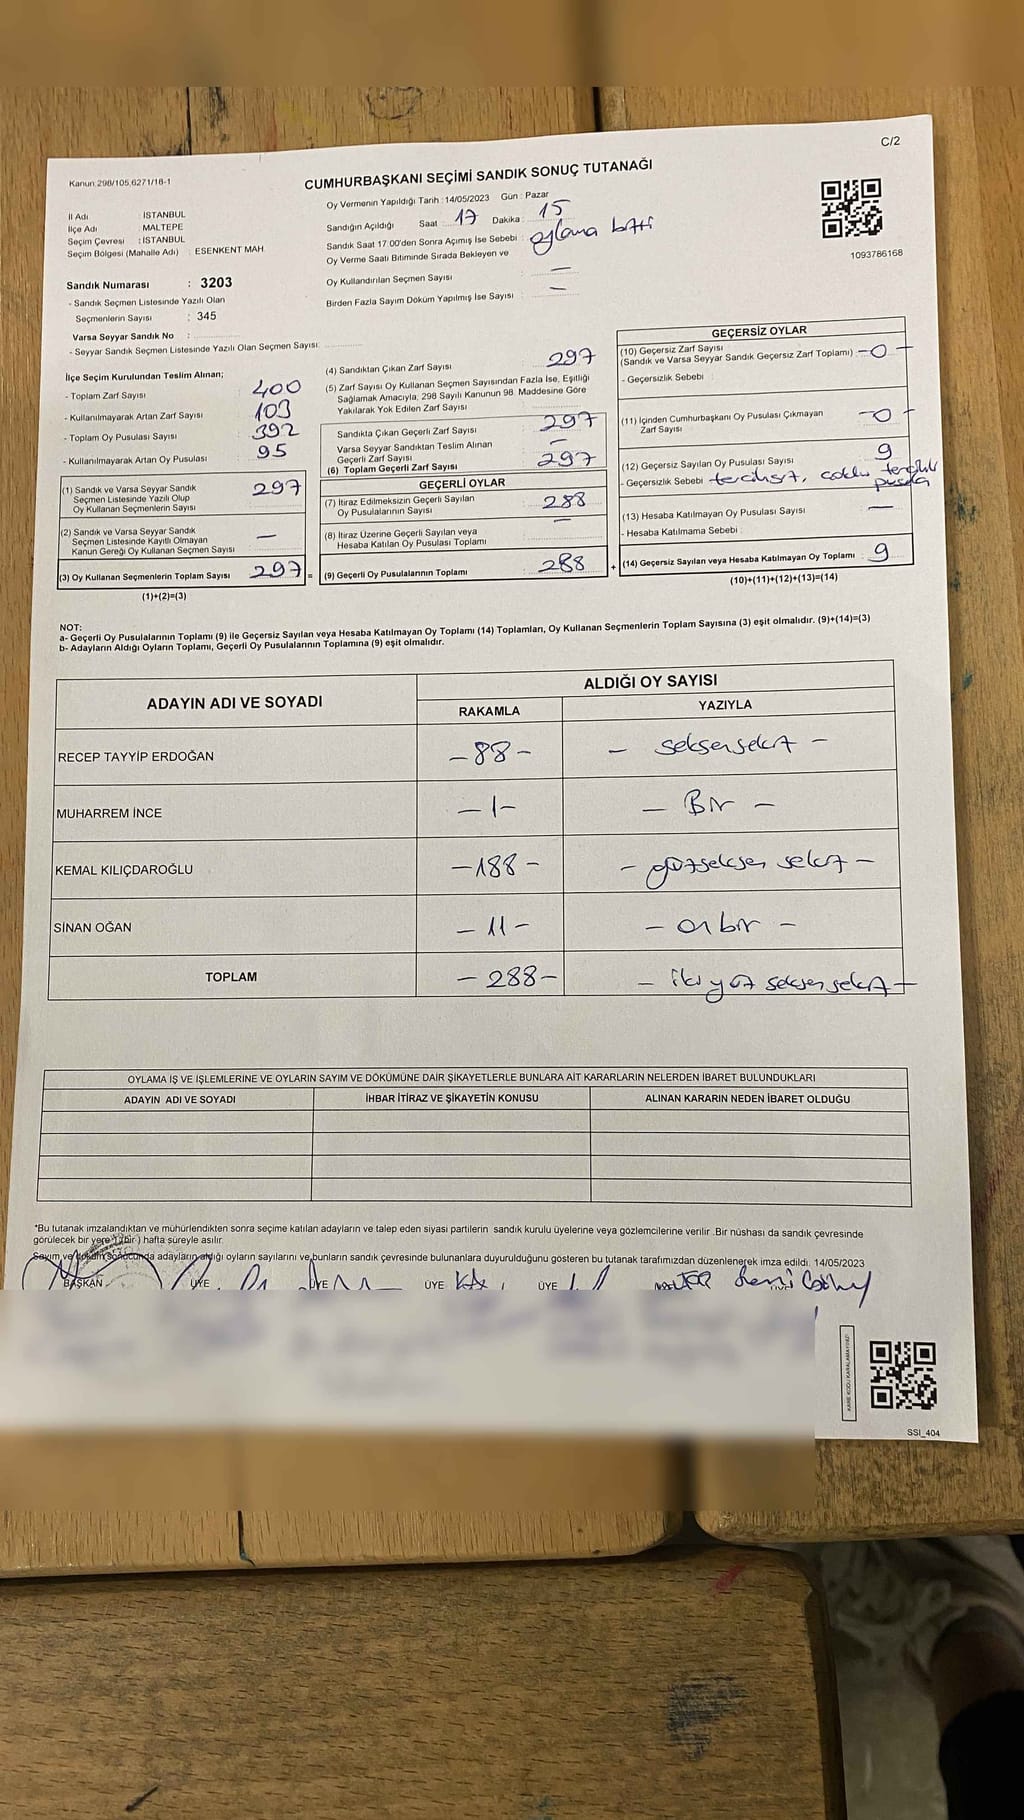 C/2
Kanun:298/105,6271/18-1
CUMHURBAŞKANI SEÇİMİ SANDIK SONUÇ TUTANAĞI
1093786168
İl Adı : İSTANBUL
İlçe Adı : MALTEPE
Seçim Çevresi : İSTANBUL
Seçim Bölgesi (Mahalle Adı) : ESENKENT MAH.
Sandık Numarası : 3203
- Sandık Seçmen Listesinde Yazılı Olan
Seçmenlerin Sayısı : 345
Varsa Seyyar Sandık No :
- Seyyar Sandık Seçmen Listesinde Yazılı Olan Seçmen Sayısı:
Oy Vermenin Yapıldığı Tarih : 14/05/2023 Gün : Pazar
Sandığın Açıldığı Saat : 17 Dakika : 15
Sandık Saat 17:00'den Sonra Açımış İse Sebebi : oylama bitti
Oy Verme Saati Bitiminde Sırada Bekleyen ve
Oy Kullandırılan Seçmen Sayısı : —
Birden Fazla Sayım Döküm Yapılmış İse Sayısı : —
İlçe Seçim Kurulundan Teslim Alınan;
- Toplam Zarf Sayısı : 400
- Kullanılmayarak Artan Zarf Sayısı : 103
- Toplam Oy Pusulası Sayısı : 392
- Kullanılmayarak Artan Oy Pusulası : 95
(1) Sandık ve Varsa Seyyar Sandık
Seçmen Listesinde Yazılı Olup
Oy Kullanan Seçmenlerin Sayısı 297
(2) Sandık ve Varsa Seyyar Sandık
Seçmen Listesinde Kayıtlı Olmayan
Kanun Gereği Oy Kullanan Seçmen Sayısı —
(3) Oy Kullanan Seçmenlerin Toplam Sayısı 297 =
(1)+(2)=(3)
(4) Sandıktan Çıkan Zarf Sayısı 297
(5) Zarf Sayısı Oy Kullanan Seçmen Sayısından Fazla İse, Eşitliği
Sağlamak Amacıyla, 298 Sayılı Kanunun 98. Maddesine Göre
Yakılarak Yok Edilen Zarf Sayısı
Sandıkta Çıkan Geçerli Zarf Sayısı 297
Varsa Seyyar Sandıktan Teslim Alınan
Geçerli Zarf Sayısı —
(6) Toplam Geçerli Zarf Sayısı 297
GEÇERLİ OYLAR
(7) İtiraz Edilmeksizin Geçerli Sayılan
Oy Pusulalarının Sayısı 288
(8) İtiraz Üzerine Geçerli Sayılan veya
Hesaba Katılan Oy Pusulası Toplamı —
(9) Geçerli Oy Pusulalarının Toplamı 288 +
GEÇERSİZ OYLAR
(10) Geçersiz Zarf Sayısı
(Sandık ve Varsa Seyyar Sandık Geçersiz Zarf Toplamı) -0-
- Geçersizlik Sebebi :
(11) İçinden Cumhurbaşkanı Oy Pusulası Çıkmayan
Zarf Sayısı -0-
(12) Geçersiz Sayılan Oy Pusulası Sayısı 9
- Geçersizlik Sebebi
pusula
(13) Hesaba Katılmayan Oy Pusulası Sayısı —
- Hesaba Katılmama Sebebi :
(14) Geçersiz Sayılan veya Hesaba Katılmayan Oy Toplamı 9
(10)+(11)+(12)+(13)=(14)
NOT:
a- Geçerli Oy Pusulalarının Toplamı (9) ile Geçersiz Sayılan veya Hesaba Katılmayan Oy Toplamı (14) Toplamları, Oy Kullanan Seçmenlerin Toplam Sayısına (3) eşit olmalıdır. (9)+(14)=(3)
b- Adayların Aldığı Oyların Toplamı, Geçerli Oy Pusulalarının Toplamına (9) eşit olmalıdır.
ADAYIN ADI VE SOYADI ALDIĞI OY SAYISI
RAKAMLA YAZIYLA
RECEP TAYYİP ERDOĞAN -88- - seksensekiz -
MUHARREM İNCE -1- - Bir -
KEMAL KILIÇDAROĞLU -188- - yüzseksen sekiz -
SİNAN OĞAN -11- - onbir -
TOPLAM -288- - ikiyüz seksensekiz -
OYLAMA İŞ VE İŞLEMLERİNE VE OYLARIN SAYIM VE DÖKÜMÜNE DAİR ŞİKAYETLERLE BUNLARA AİT KARARLARIN NELERDEN İBARET BULUNDUKLARI
ADAYIN ADI VE SOYADI İHBAR İTİRAZ VE ŞİKAYETİN KONUSU ALINAN KARARIN NEDEN İBARET OLDUĞU
*Bu tutanak imzalandıktan ve mühürlendikten sonra seçime katılan adayların ve talep eden siyasi partilerin sandık kurulu üyelerine veya gözlemcilerine verilir. Bir nüshası da sandık çevresinde
görülecek bir yere 1 (bir) hafta süreyle asılır.
Sayım ve döküm sonucunda adayların aldığı oyların sayılarını ve bunların sandık çevresinde bulunanlara duyurulduğunu gösteren bu tutanak tarafımızdan düzenlenerek imza edildi. 14/05/2023
BAŞKAN ÜYE ÜYE ÜYE ÜYE
KARE KODU KARALAMAYINIZ!
SSI_404